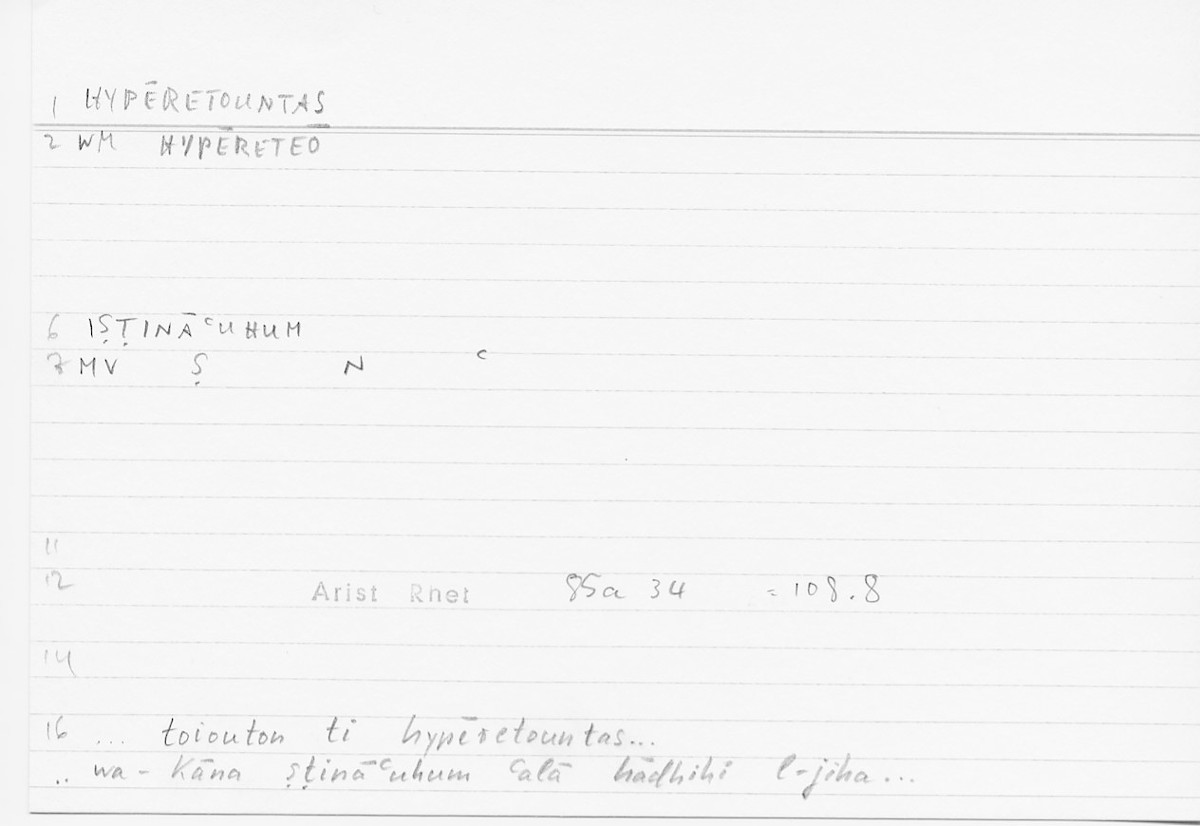 1 HYPĒRETOUNTAS
2 WM HYPĒRETEŌ
6 IṢṬINĀʿUHUM
7 MV Ṣ N ʿ
11
12 Arist Rhet 85a 34 = 108.8
14
16 ... toiouton ti hypēretountas...
.. wa-Kāna ṣṭināʿuhum ʿalā hādhihi l-jiha...